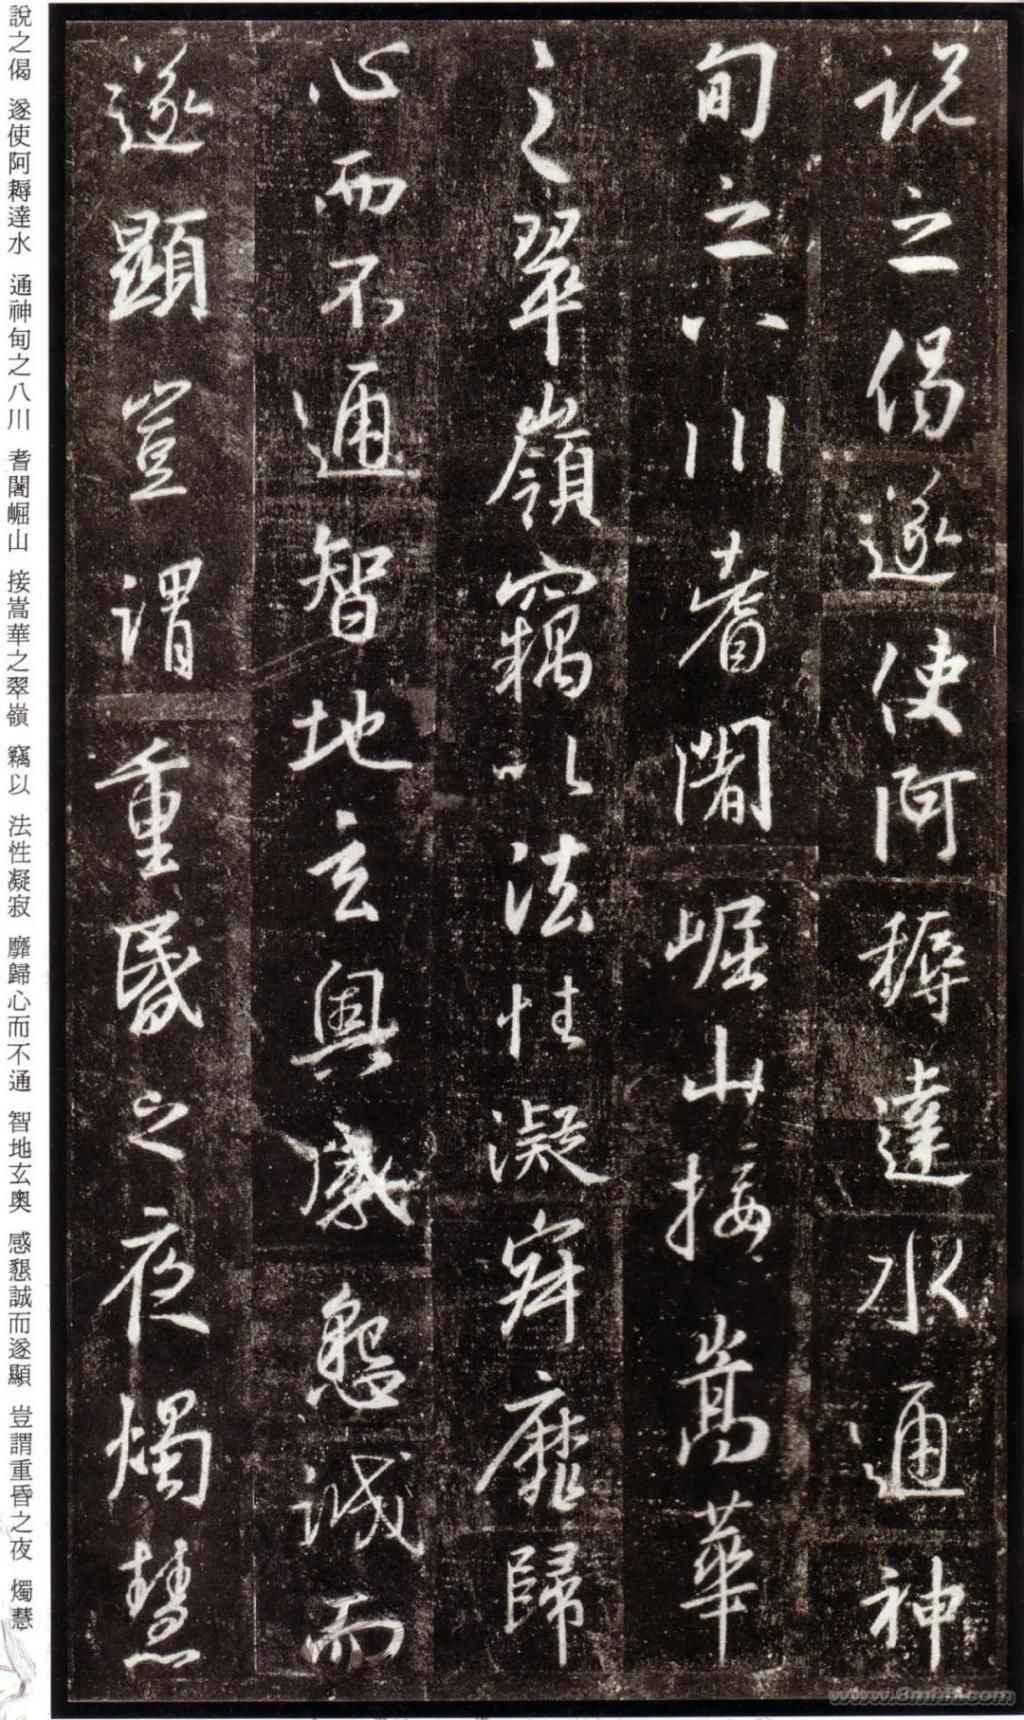 説之偈遂使阿耨達水通神
甸之八川耆闍崛山接嵩華
之翠嶺竊以法性凝寂靡歸
心而不通智地玄奥感懇誠而
遂顯豈謂重昏之夜燭慧
說之偈 遂使阿耨達水 通神甸之八川 耆闍崛山 接嵩華之翠嶺 竊以 法性凝寂 靡歸心而不通 智地玄奧 感懇誠而遂顯 豈謂重昏之夜 燭慧